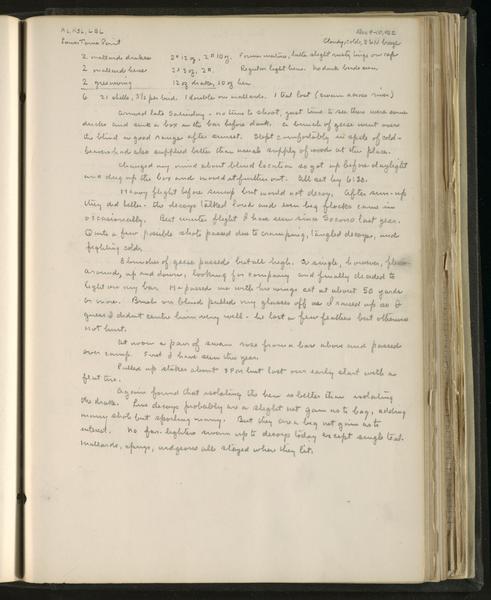 AL, KSL, LBL
Lower Tome Point
Cloudy, cold, NW
2 mallards drakes 2# 12 oz, 2# 10 oz. Former mature, latter slight rusty tinge on cap
2 mallards hens 2# 3 oz, 2#. Regular light hens. No duck birds seen
2 greenwing 12 oz drake, 10 oz hen
6 21 shells, 3½ per bird. 1 double on mallards. 1 teal lost (swam across river)
Arrived late Saturday - no time to shoot, just time to see there were some
ducks and sink a box in the bar before dark. A bunch of geese went over
the blind in good range after sunset. Slept comfortably in spite of cold -
beavers had also supplied better than usual supply of wood at this place.
Changed my mind about blind location so got up before daylight
and dug up the box and moved it further out. All set by 6:30.
Heavy flight before sunup but would not decoy. After sun-up
they did better - the decoys talked loud and even big flocks came in
occasionally. Best winter flight I have seen since Socorro last year.
Quite a few possible shots passed due to cramping, tangled decoys, and
fighting cold.
3 bunches of geese passed but all high. A single, however, flew
around, up and down, looking for company and finally decided to
light on my bar. He passed me with his wings set at about 50 yards
or more. Brush on blind pulled my glasses off as I raised up so I
guess I didn't centre him very well - he lost a few feathers but otherwise
not hurt.
At noon a pair of swan rose from a bar above and passed
over camp. First I have seen this year.
Pulled up stakes about 3 PM but lost our early start with a
flat tire.
Again found that isolating the hen is better than isolating
the drake. Live decoys probably are a slight net gain as to bag, adding
many shots but spoiling many. But they are a big net gain as to
interest. No far-lighters swam up to decoys today except single teal.
Mallards, sprigs, widgeons all stayed where they lit.